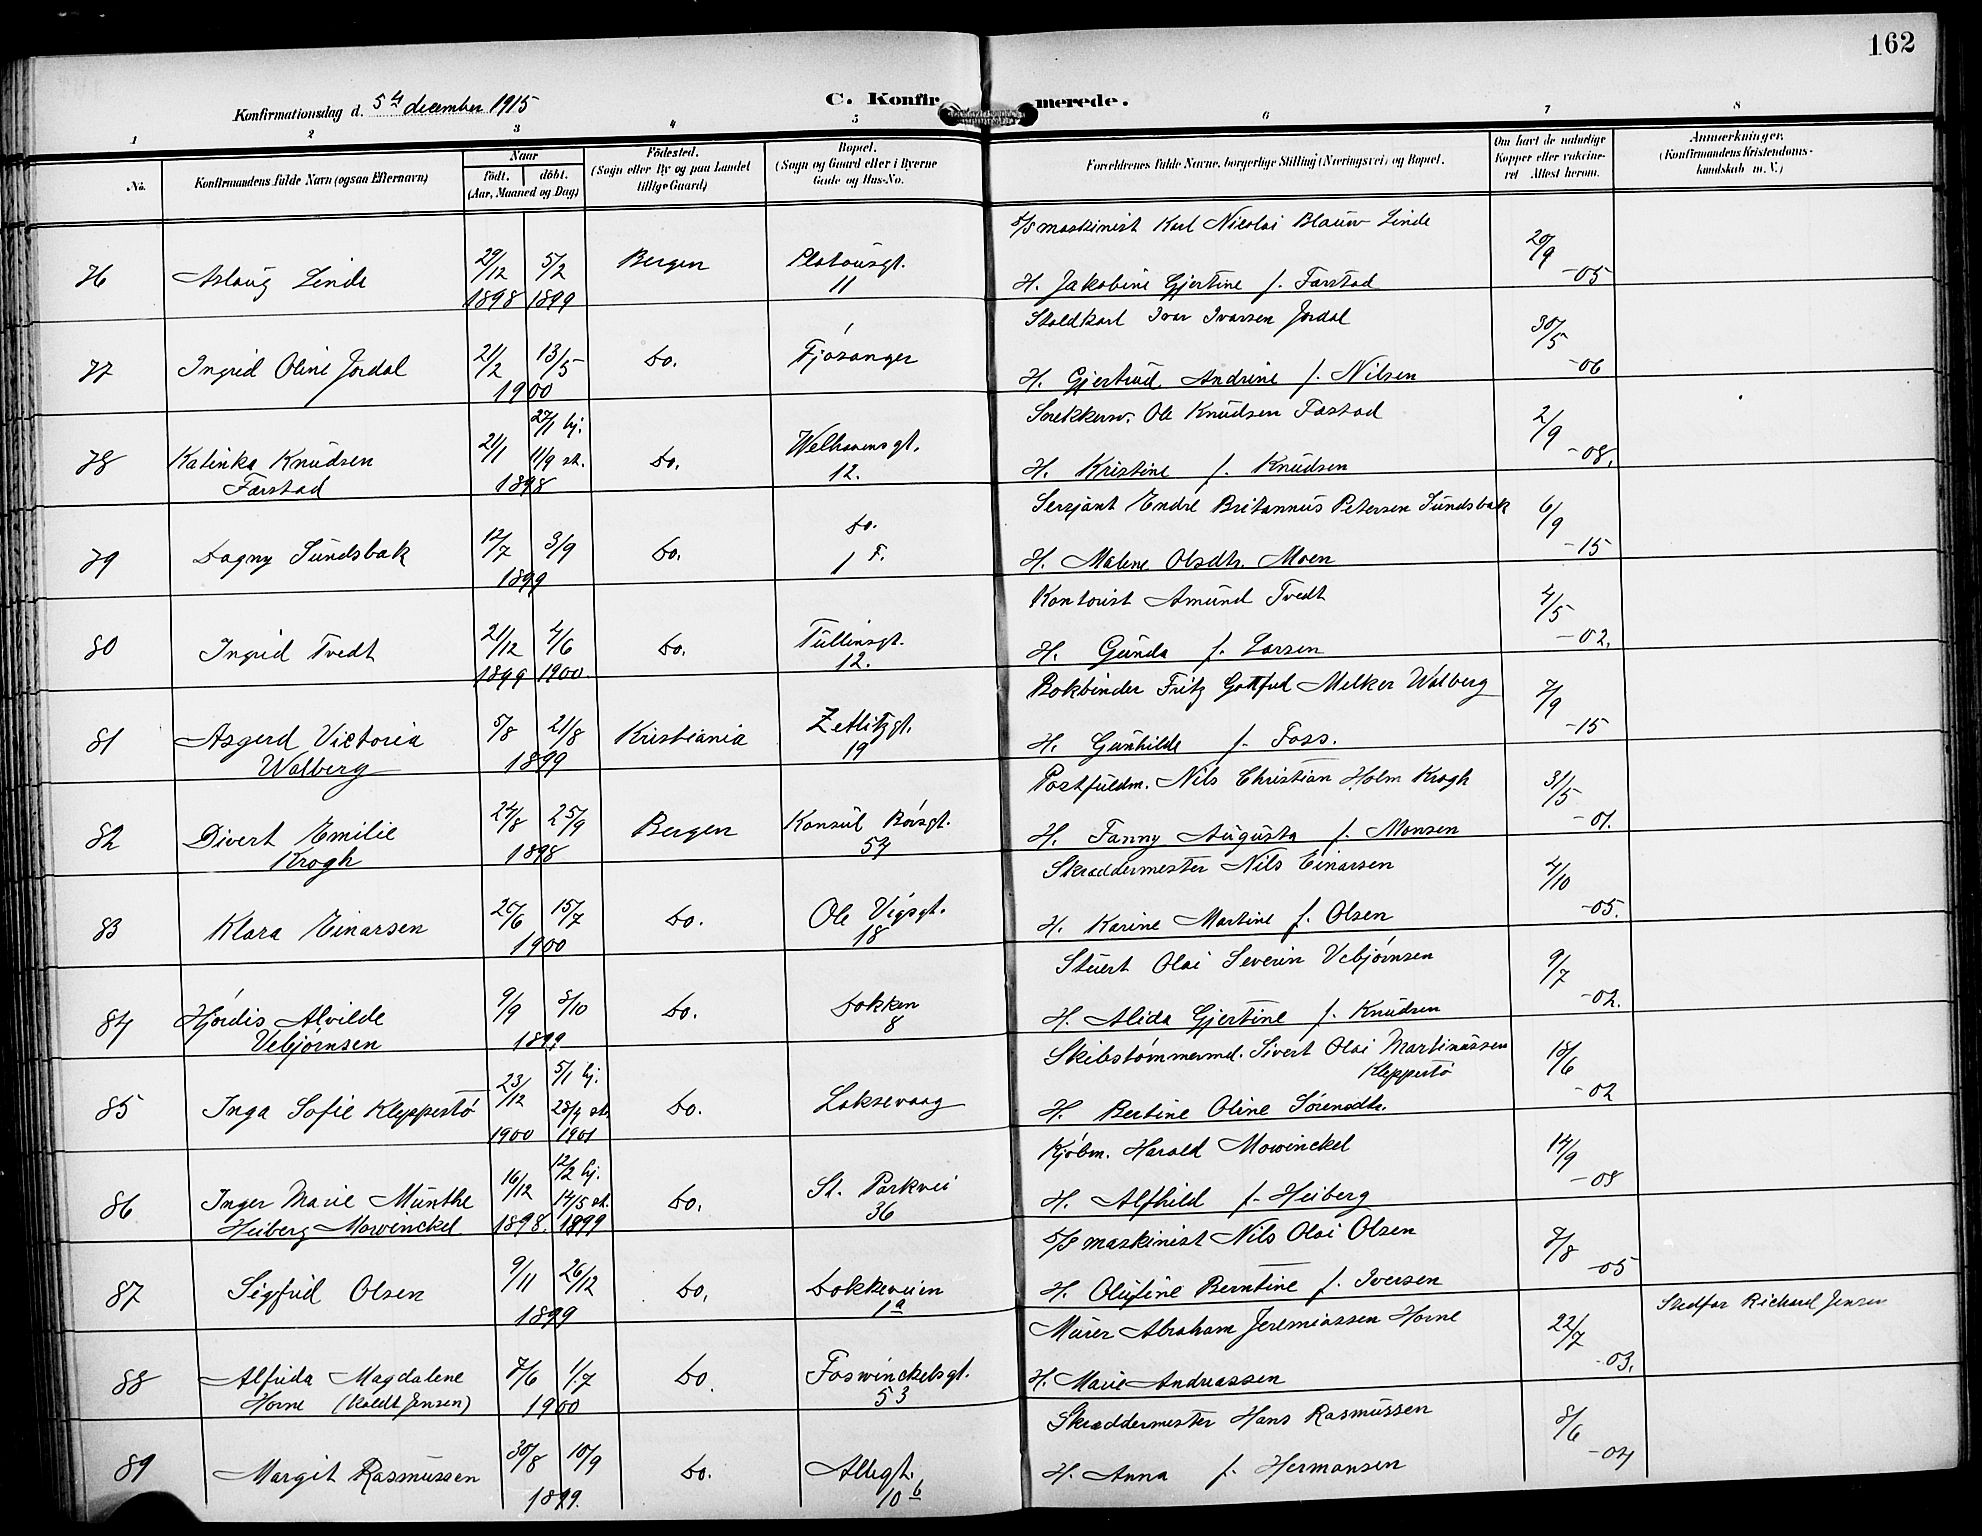 162
Konfirmationsdag d. 5te december 1915
C. Konfirmerede.
1 2 3 4 5 6 7 8
No.
Konfirmandens fulde Navn (ogsaa Efternavn)
Naar
födt. döbt.
(Aar, Maaned og Dag)
Födested.
(Sogn eller By og paa Landet
tillige Gaard)
Bopæl.
(Sogn og Gaard eller i Byerne
Gade og Hus-No.
Forældrenes fulde Navne, borgerlige Stilling (Næringsvei) og Bopæl.
Om havt de naturlige
Kopper eller vaksine-
ret Attest herom.
Anmærkninger.
(Konfirmandens Kristendoms-
kundskab m. V.)
S/S maskinist Karl Nicolai Blauw Linde
76 Aslaug Linde 29/12 1898 5/2 1899 Bergen Platousgt. 11 20/9 -05
H. Jakobine Gjertine f. Farstad
Staldkarl Ivar Ivarsen Jordal
77 Ingrid Oline Jordal 21/2 13/5 1900 Do. Fjøsanger 30/5 -06
H. Gjertrud Andrine f. Nilsen
Snekkersv. Ole Knudsen Farstad
78 Katinka Knudsen
Farstad 21/1 27/1 hj. 11/9 st. 1898 Do. Welhavensgt. 12. 2/9 -08.
H. Kristine f. Knudsen
Sersjant Endre Britannus Petersen Sundsbak
79 Dagny Sundsbak 12/7 3/9 1899 Do. do. 1 F. 6/9 -15
H. Malene Olsdtr. Moen
Kontorist Amund Tvedt
80 Ingrid Tvedt 21/12 1899 4/6 1900 Do. Tullinsgt. 12. 4/5 -02.
H. Gunda f. Larsen
Bokbinder Fritz Gottfred Melker Walberg
81 Asgerd Victoria
Walberg 5/8 21/8 1899 Kristiania Zetlitzgt. 19 7/9 -15
H. Gunhilde f. Foss.
Postfuldm. Nils Christian Holm Krogh
82 Divert Emilie
Krogh 24/8 25/9 1898 Bergen Konsul Børsgt. 54 31/5 -01.
H. Fanny Augusta f. Monsen
Skræddermester Nils Einarsen
83 Klara Einarsen 20/6 15/7 1900 Do. Ole Vigsgt. 18 4/10 -05.
H. Karine Martine f. Olsen
Stuert Olai Severin Vebjørnsen
84 Hjördis Alvilde
Vebjørnsen 9/9 8/10 1899 Do. Dokken 8 9/7 -02.
H. Alida Gjertine f. Knudsen
Skibstømmermd. Sivert Olai Martinussen
Kleppestø
85 Inga Sofie Kleppestö 23/12 1900 5/1 hj. 28/4 st. 1901 Do. Laksevaag 18/6 -02
H. Bertine Oline Sörensdtr.
Kjöbm. Harald Mowinckel
86 Inger Marie Munthe
Heiberg Mowinckel. 16/12 1898. 12/2 hj. 14/5 st. 1899 Do. St. Parkvei 36 14/9 -08
H. Alfhild f. Heiberg
S/S maskinist Nils Olai Olsen
87 Sigfrid Olsen 9/11 26/12 1899 Do. Dokkeveien 1a 7/8 -05
H. Olufine Berntine f. Iversen
Murer Abraham Jeremiassen Horne
88 Alfrida Magdalene
Horne (kaldt Jensen) 7/6 1/7 1900 Do. Foswinckelsgt. 53 22/7 -03. Stedfar Richard Jensen
H. Marie Andreassen
Skræddermester Hans Rasmussen
89 Margit Rasmussen 30/8 10/9 1899. Do. Allegt. 10 b 8/6 -04
H. Anna f. Hermansen